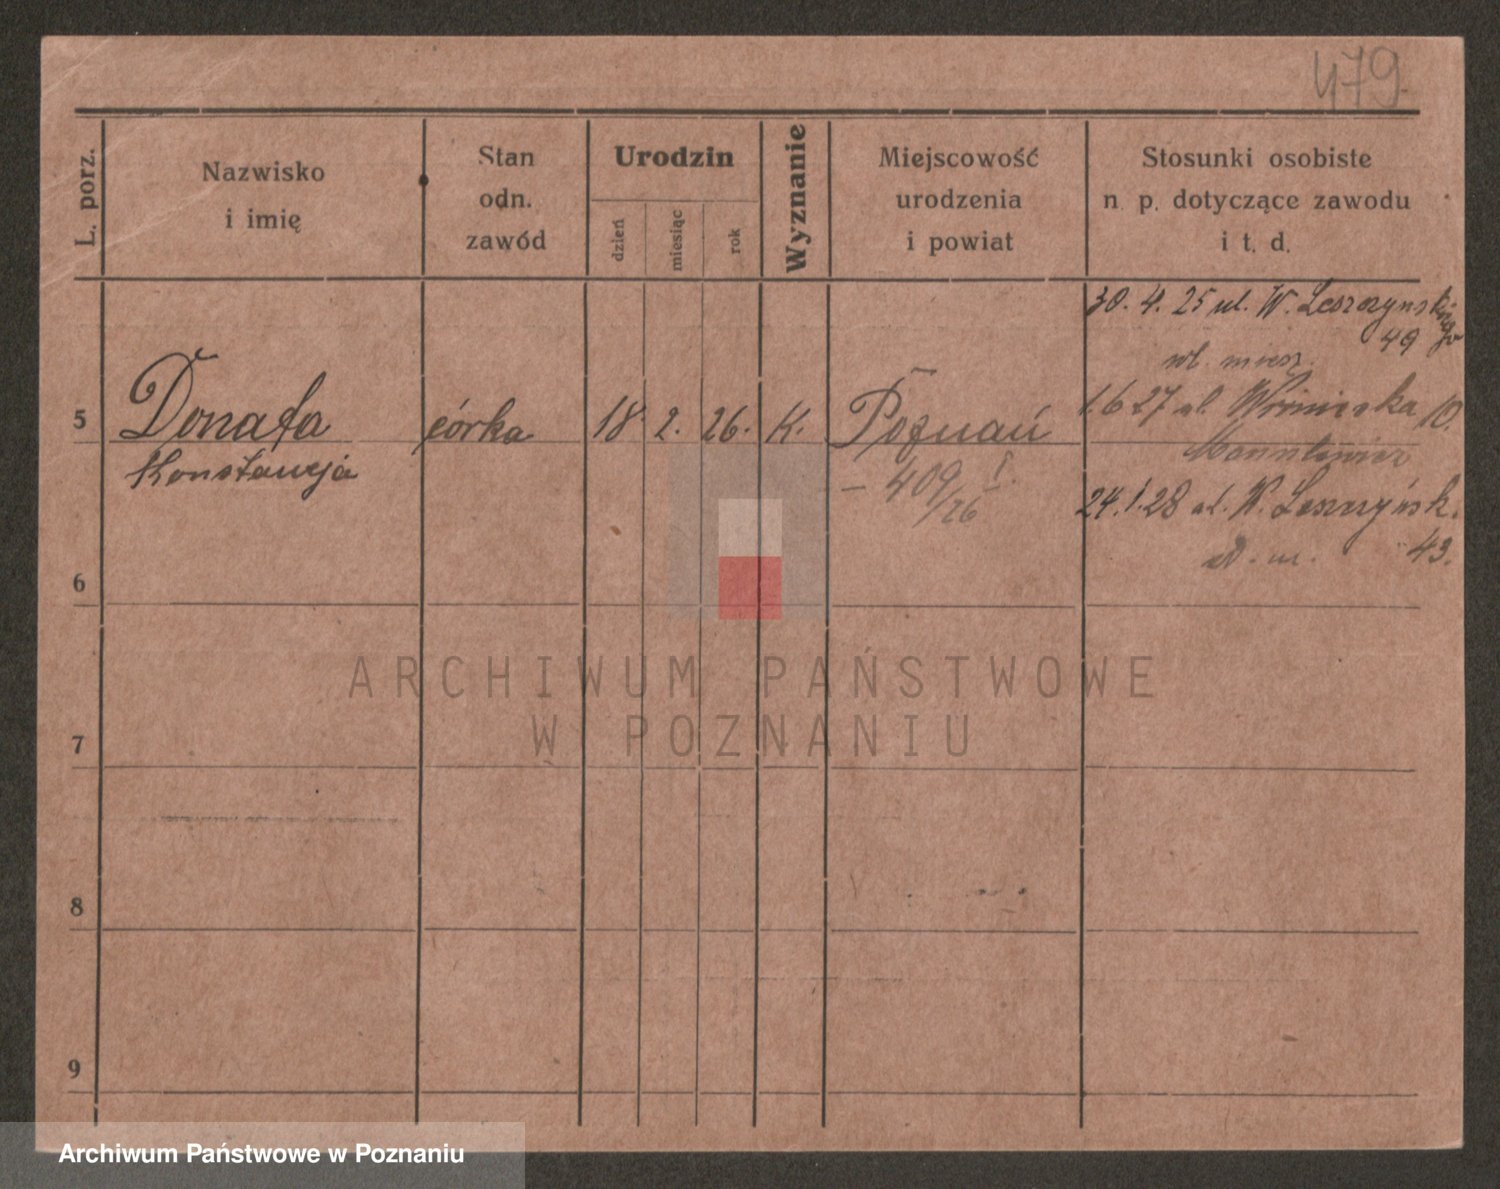 479.
L. porz.
Nazwisko
i imię
Stan
odn.
zawód
Urodzin
dzień
miesiąc
rok
Wyznanie
Miejscowość
urodzenia
i powiat
Stosunki osobiste
n. p. dotyczące zawodu
i t. d.
30. 4. 25 ul. W. Leszczyńskiego
49
wł. miesz.
5 Donata córka 18. 2. 26. K. Poznań
Konstancja
– 409/26 I. –
1. 6 27 ul. 10.
24. 1. 28 ul. W. Leszczyńsk.
43.
6
7
8
9
ARCHIWUM PAŃSTWOWE
W POZNANIU
Archiwum Państwowe w Poznaniu